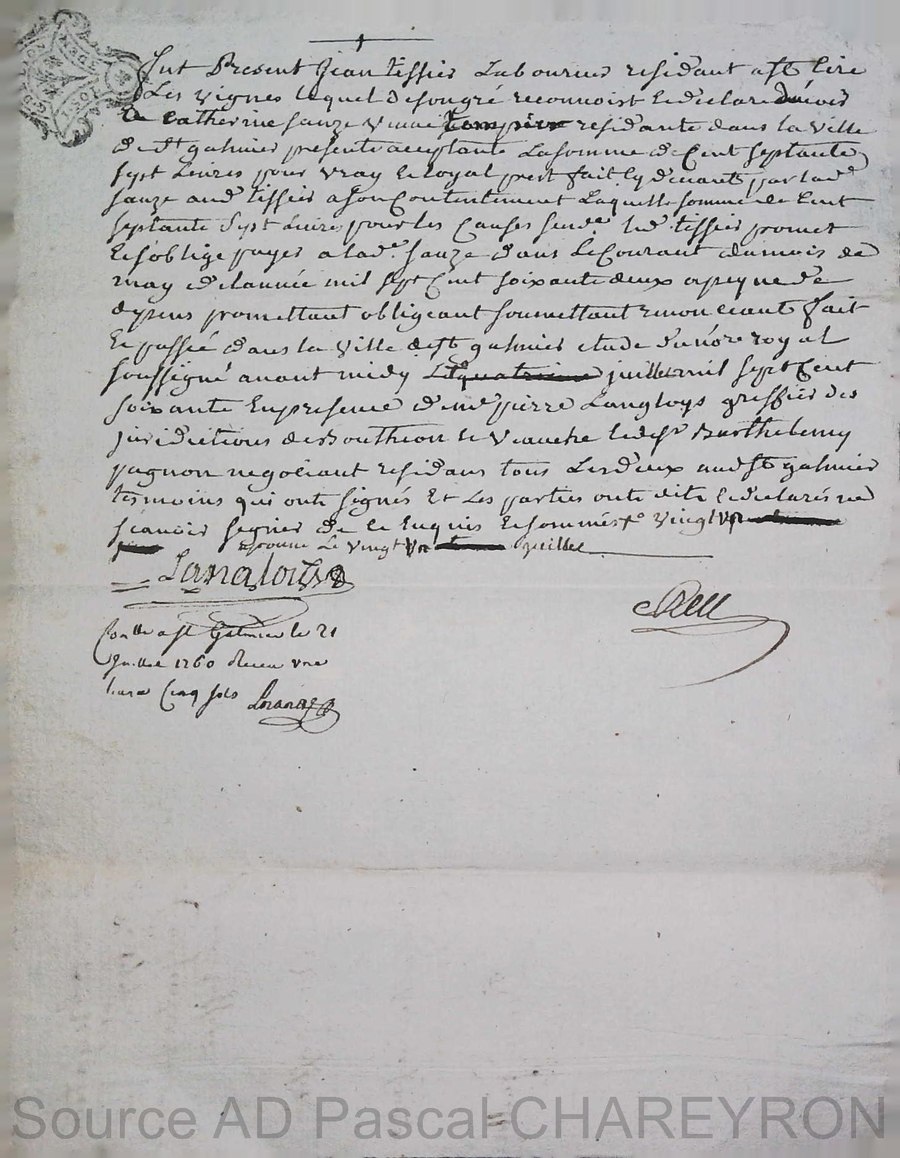 fut Present Jean tissier Laboureur residant a st Cire
Les vignes lequel de son gré reconnoist et declare devoir
a Catherine sauze veuve residante dans la ville
de st galmier presente acceptante La somme de Cent septante
sept Livres pour vray et loyal prest fait cy devant par lad.e
sauze aud tissier a son Contentement Laquelle somme de Cent
septante sept Livres pour les Causes susd.e led tissier promet
et s'oblige payer a lad.e sauze dans Le Courant du mois de
may de l'année mil sept Cent soixante deux a peyne de
depens promettant obligeant soumettant renonceant fait
et passé dans la ville de st galmier etude du no.re royal
soussigné avant midy Le quatrieme juillet mil sept Cent
soixante En presence de me pierre Langloys greffier des
juridictions de Bouthéon et Veauche et de sr Barthelemy
pagnon negotiant residans tous Les deux aud st galmier
tesmoins qui ont signés Et Les parties ont dit et declarés ne
sçavoir signer de ce Enquis et sommés vingt un
Le vingt un juillet
Langlois
Con.lle a st Galmier le 21
Juillet 1760 Receu une
livre Cinq sols
Source AD Pascal CHAREYRON